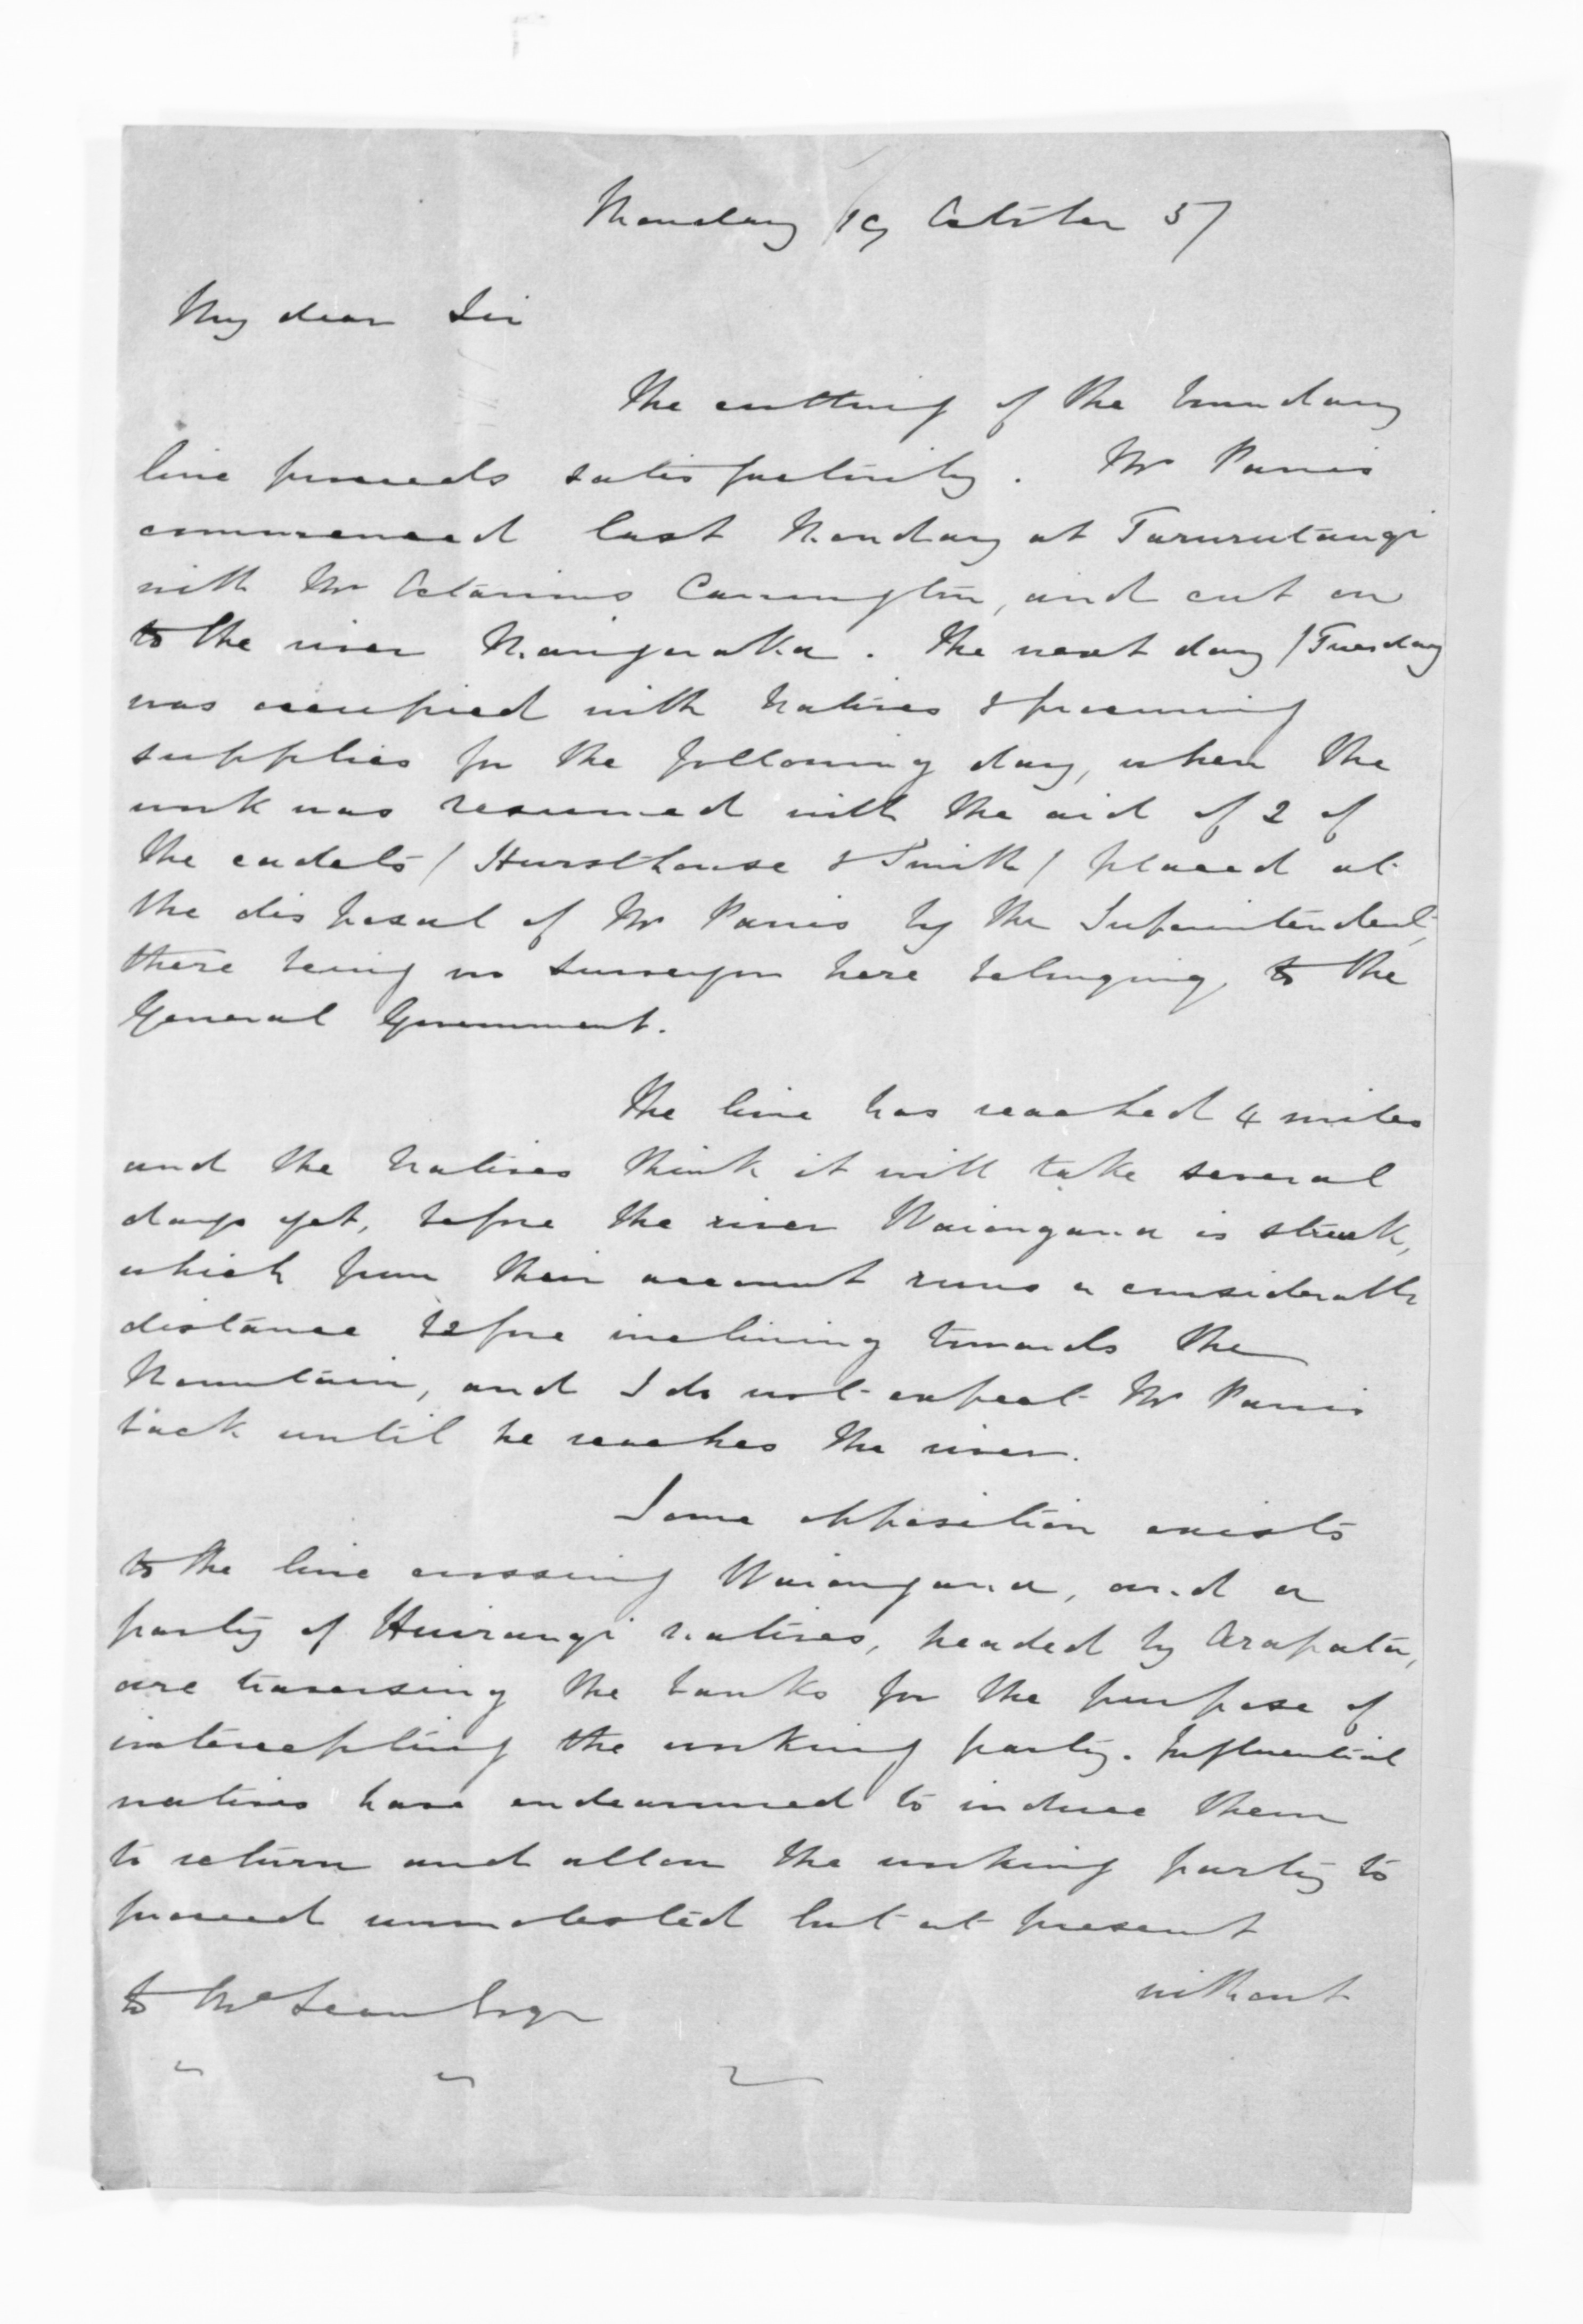 Monday 19 October 57
My dear Sir
The cutting of the boundary
line proceeds satisfactorily. Mr Parris
commenced last Monday at Tarurutangi
with Mr Octavius Carrington, and cut on
to the river Mangaraka. The next day / Tuesday
was occupied with Natives & procuring
supplies for the following day, when the
work was resumed with the aid of 2 of
the cadets / Hursthouse & Smith / placed at
the disposal of Mr Parris by the Superintendent,
there being no surveyor here belonging to the
General Government.
The line has reached 4 miles
and the Natives think it will take several
days yet, before the river Waiongana is struck,
which from their account runs a considerable
distance before inclining towards the
Mountain, and I do not expect Mr Parris
back until he reaches the river.
Some opposition exists
to the line crossing Waiongana, and a
party of Huirangi natives, headed by Arapata,
are traversing the banks for the purpose of
intercepting the working party. Influential
natives have endeavoured to induce them
to return and allow the working party to
proceed unmolested but at present
without
to McLean Esqr